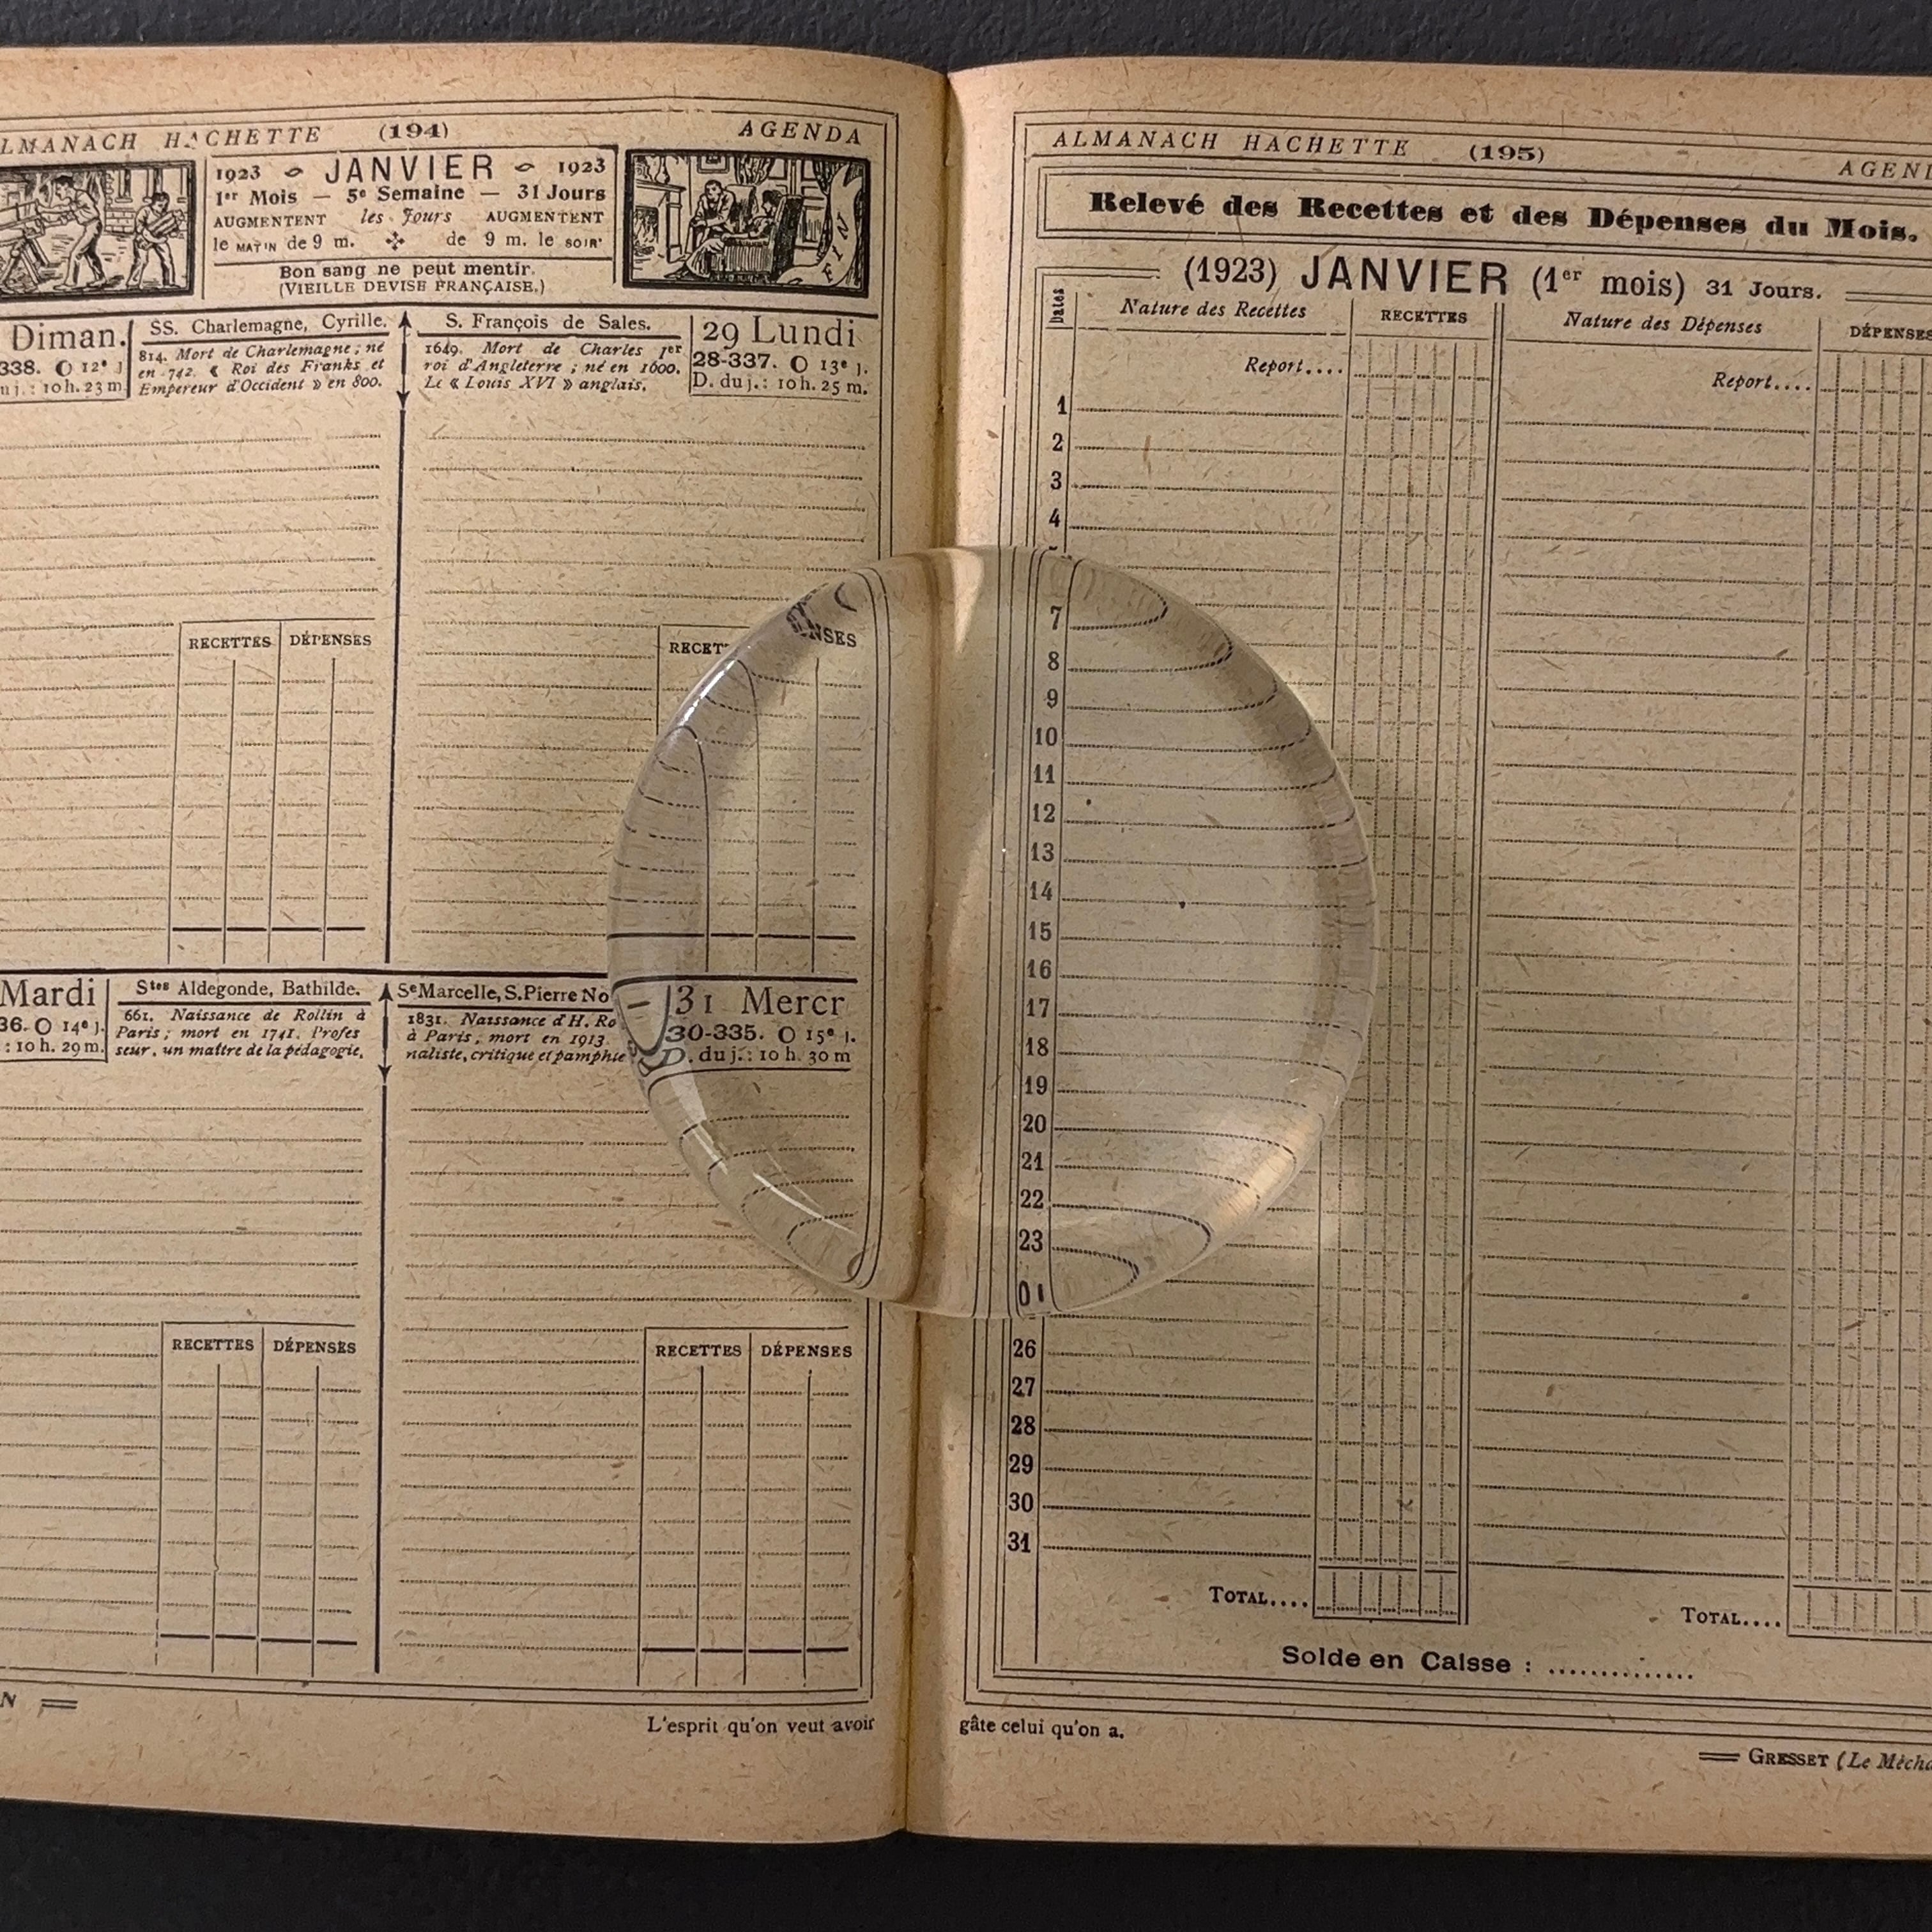 LMANACH HACHETTE (194) AGENDA
1923 JANVIER 1923
1er Mois — 5e Semaine — 31 Jours
AUGMENTENT les Jours AUGMENTENT
le MATIN de 9 m. de 9 m. le SOIR
Bon sang ne peut mentir.
(VIEILLE DEVISE FRANÇAISE.)
FIN
Diman.
338. O 12e J
u j.: 10 h. 23 m.
SS. Charlemagne, Cyrille.
814. Mort de Charlemagne ; né
en 742. « Roi des Franks et
Empereur d'Occident » en 800.
S. François de Sales.
1649. Mort de Charles Ier
roi d'Angleterre ; né en 1600.
Le « Louis XVI » anglais.
29 Lundi
28-337. O 13e j.
D. du j.: 10 h. 25 m.
RECETTES DÉPENSES
RECET NSES
Mardi
36. O 14e j.
: 10 h. 29 m.
Stes Aldegonde, Bathilde.
661. Naissance de Rollin à
Paris ; mort en 1741. Profes
seur, un maître de la pédagogie.
Se Marcelle, S. Pierre No
1831. Naissance d'H. Ro
à Paris, mort en 1913.
naliste, critique et pamphle
31 Mercr
30-335. O 15e j.
D. du j.: 10 h. 30 m
RECETTES DÉPENSES
RECETTES DÉPENSES
N
L'esprit qu'on veut avoir
ALMANACH HACHETTE (195) AGEN
Relevé des Recettes et des Dépenses du Mois.
(1923) JANVIER (1er mois) 31 Jours.
Dates Nature des Recettes RECETTES Nature des Dépenses DÉPENSES
Report.... Report....
1
2
3
4
7
8
9
10
11
12
13
14
15
16
17
18
19
20
21
22
23
26
27
28
29
30
31
TOTAL.... TOTAL....
Solde en Caisse : ..............
gâte celui qu'on a.
GRESSET (Le Mécha